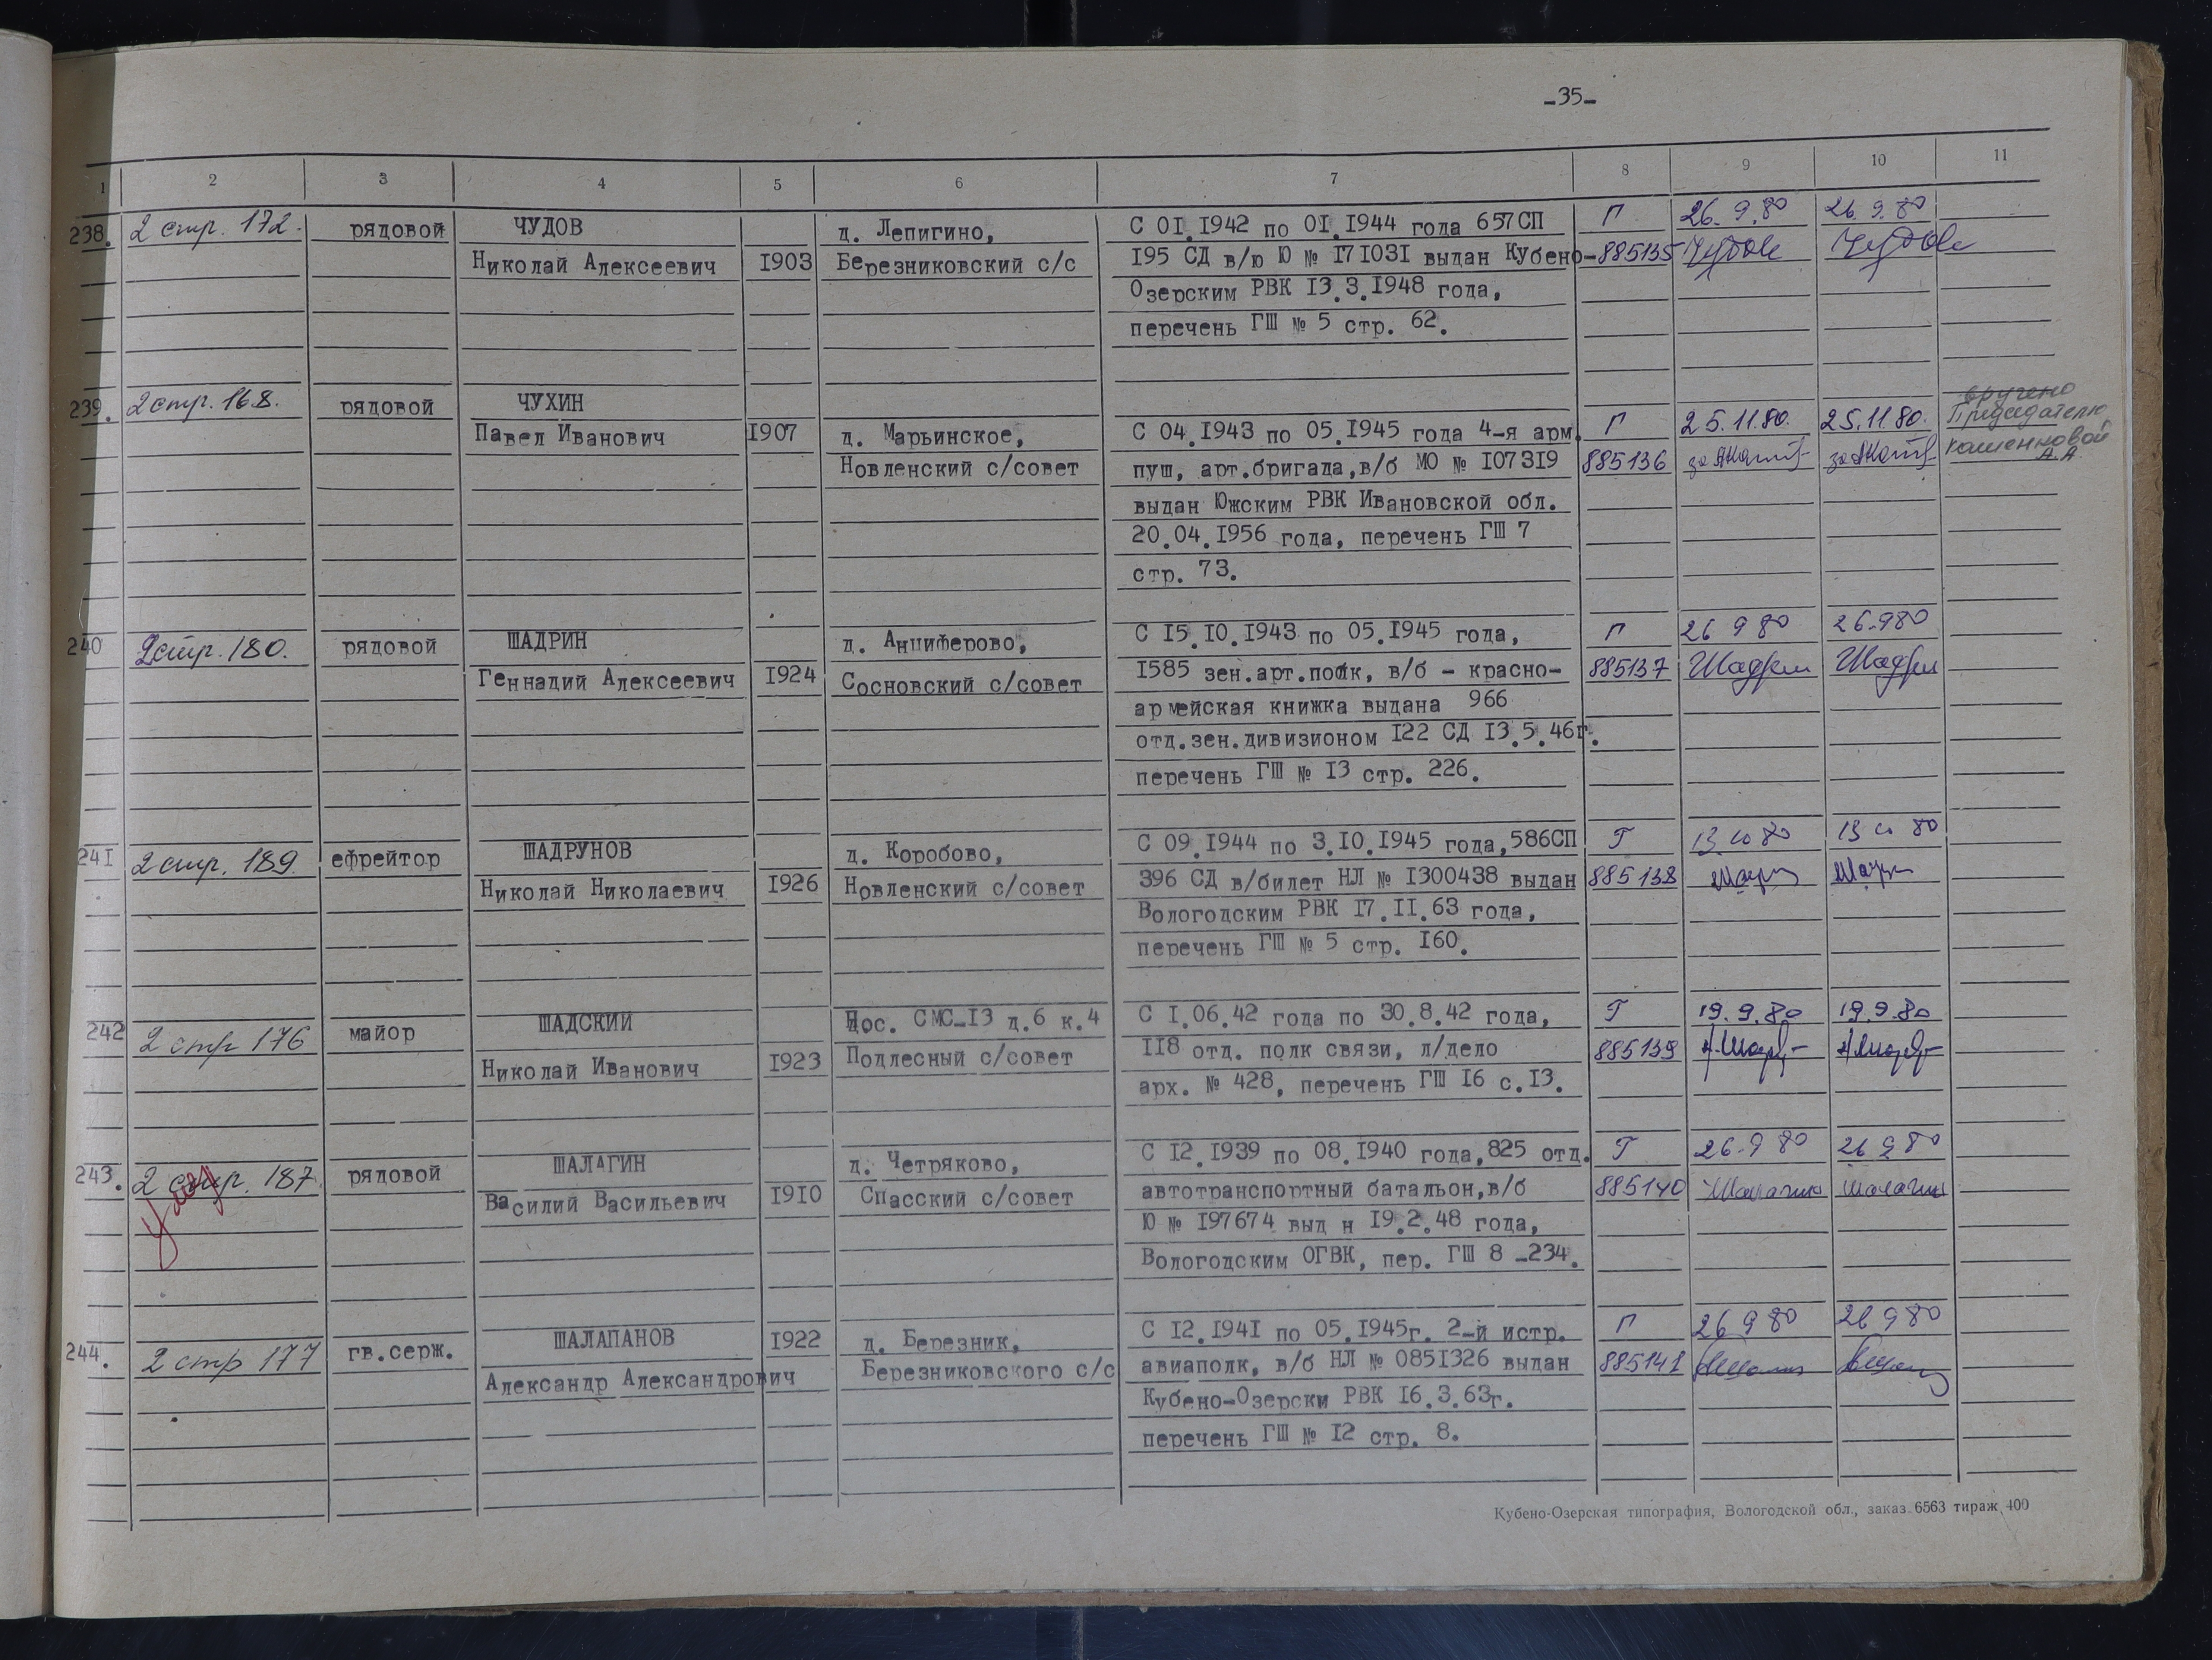 -35-
1 2 3 4 5 6 7 8 9 10 11
238. 2 стр. 172. рядовой ЧУДОВ д. Лепигино, С 01.1942 по 01.1944 года 657СП Г 26.9.80 26.9.80
Николай Алексеевич 1903 Березниковский с/с 195 СД в/ю Ю № 171031 выдан Кубено- 885135 Чудов Чудов
Озерским РВК 13.3.1948 года,
перечень ГШ № 5 стр. 62.
239. 2 стр. 168. рядовой ЧУХИН вручено
Павел Иванович 1907 д. Марьинское, С 04.1943 по 05.1945 года 4-я арм. Г 25.11.80. 25.11.80. Председателю
Новленский с/совет пуш, арт.бригада,в/б МО № 107319 885136 за за А.А.
выдан Южским РВК Ивановской обл.
20.04.1956 года, перечень ГШ 7
стр. 73.
240 2 стр. 180. рядовой ШАДРИН д. Анциферово, С 15.10.1943 по 05.1945 года, Г 26 9 80 26.9 80
Геннадий Алексеевич 1924 Сосновский с/совет 1585 зен.арт.полк, в/б - красно- 885137
армейская книжка выдана 966
отд.зен.дивизионом 122 СД 13.5.46г.
перечень ГШ № 13 стр. 226.
241 2 стр. 189. ефрейтор ШАДРУНОВ д. Коробово, С 09.1944 по 3.10.1945 года,586СП Г 13 10 80 13 10 80
Николай Николаевич 1926 Новленский с/совет 396 СД в/билет НЛ № 1300438 выдан 885138
Вологодским РВК 17.11.63 года,
перечень ГШ № 5 стр. 160.
242 2 стр 176 майор ШАДСКИЙ Пос. СМС-13 д.6 к.4 С 1.06.42 года по 30.8.42 года, Г 19.9.80 19.9.80
Николай Иванович 1923 Подлесный с/совет 118 отд. полк связи, л/дело 885139
арх. № 428, перечень ГШ 16 с.13.
243. 2 стр. 187. рядовой ШАЛАГИН д. Четряково, С 12.1939 по 08.1940 года,825 отд. Г 26.9 80 26 9 80
Василий Васильевич 1910 Спасский с/совет автотранспортный батальон,в/б 885140 Шалагин Шалагин
Ю № 197674 выд н 19.2.48 года,
Вологодским ОГВК, пер. ГШ 8 -234.
244. 2 стр 177 гв.серж. ШАЛАПАНОВ 1922 д. Березник, С 12.1941 по 05.1945г. 2-й истр. Г 26 9 80 26 9 80
Александр Александрович Березниковского с/с авиаполк, в/б НЛ № 0851326 выдан 885141
Кубено-Озерски РВК 16.3.63г.
перечень ГШ № 12 стр. 8.
Кубено-Озерская типография, Вологодской обл., заказ 6563 тираж 400